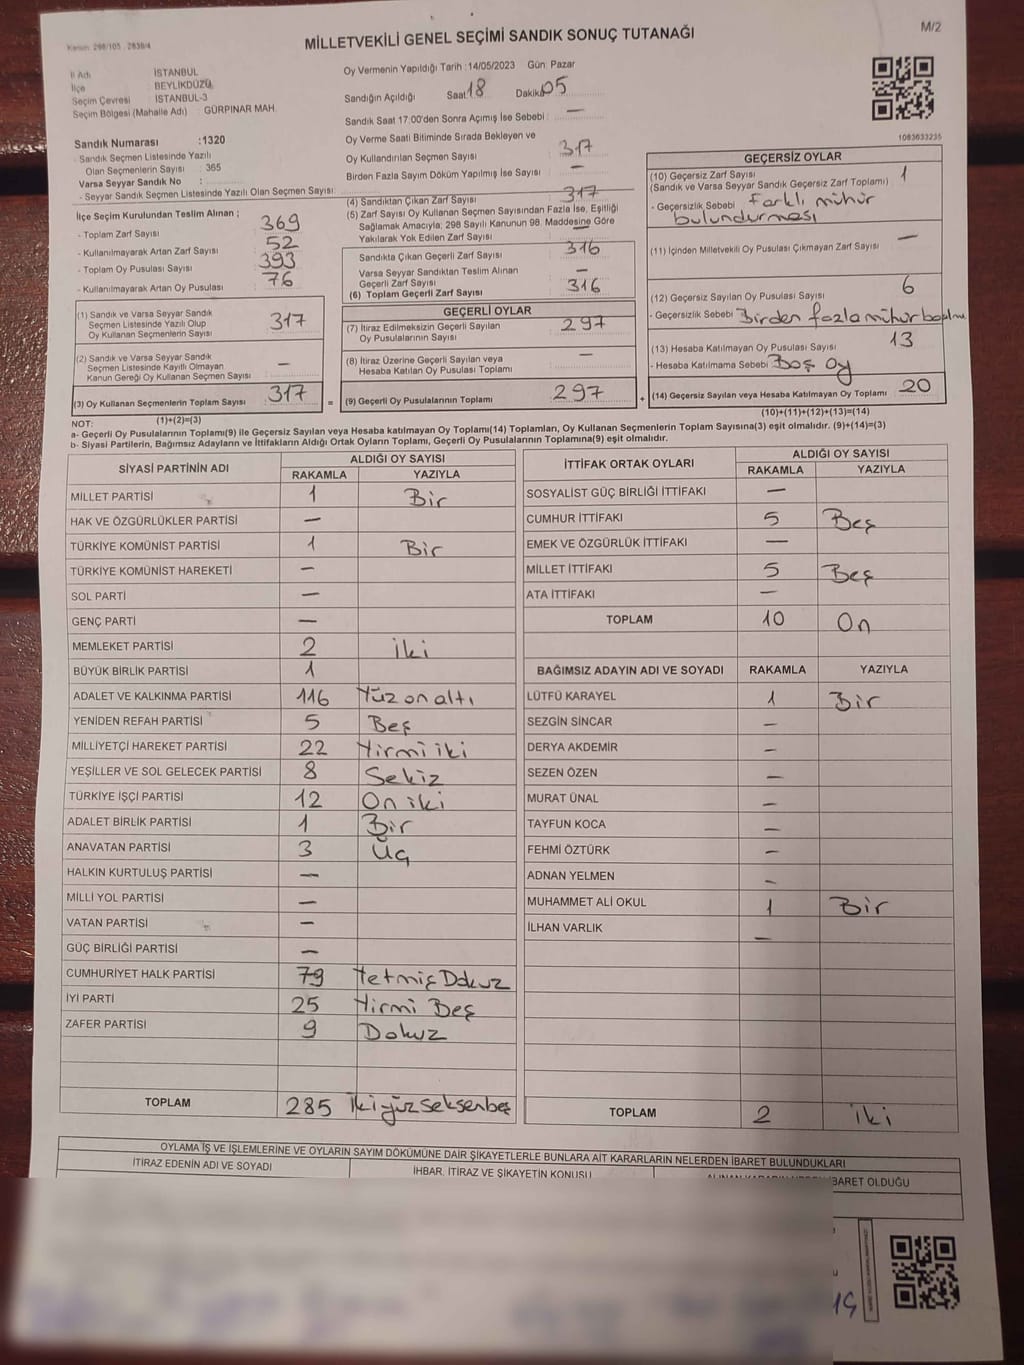 Kanun: 298/105 , 2839/4
MİLLETVEKİLİ GENEL SEÇİMİ SANDIK SONUÇ TUTANAĞI
M/2
İl Adı İSTANBUL
İlçe BEYLİKDÜZÜ
Seçim Çevresi İSTANBUL-3
Seçim Bölgesi (Mahalle Adı) GÜRPINAR MAH.
Sandık Numarası :1320
- Sandık Seçmen Listesinde Yazılı
Olan Seçmenlerin Sayısı : 365
Varsa Seyyar Sandık No :
- Seyyar Sandık Seçmen Listesinde Yazılı Olan Seçmen Sayısı
İlçe Seçim Kurulundan Teslim Alınan ;
- Toplam Zarf Sayısı 369
- Kullanılmayarak Artan Zarf Sayısı 52
- Toplam Oy Pusulası Sayısı 393
- Kullanılmayarak Artan Oy Pusulası 76
(1) Sandık ve Varsa Seyyar Sandık
Seçmen Listesinde Yazılı Olup
Oy Kullanan Seçmenlerin Sayısı 317
(2) Sandık ve Varsa Seyyar Sandık
Seçmen Listesinde Kayıtlı Olmayan
Kanun Gereği Oy Kullanan Seçmen Sayısı —
(3) Oy Kullanan Seçmenlerin Toplam Sayısı 317
(1)+(2)=(3)
Oy Vermenin Yapıldığı Tarih :14/05/2023 Gün: Pazar
Sandığın Açıldığı Saat 18 Dakika 05
Sandık Saat 17.00'den Sonra Açımış İse Sebebi : —
Oy Verme Saati Bitiminde Sırada Bekleyen ve
Oy Kullandırılan Seçmen Sayısı : 317
Birden Fazla Sayım Döküm Yapılmış İse Sayısı : —
(4) Sandıktan Çıkan Zarf Sayısı 317
(5) Zarf Sayısı Oy Kullanan Seçmen Sayısından Fazla İse, Eşitliği
Sağlamak Amacıyla; 298 Sayılı Kanunun 98. Maddesine Göre
Yakılarak Yok Edilen Zarf Sayısı —
Sandıkta Çıkan Geçerli Zarf Sayısı 316
Varsa Seyyar Sandıktan Teslim Alınan
Geçerli Zarf Sayısı —
(6) Toplam Geçerli Zarf Sayısı 316
GEÇERLİ OYLAR
(7) İtiraz Edilmeksizin Geçerli Sayılan
Oy Pusulalarının Sayısı 297
(8) İtiraz Üzerine Geçerli Sayılan veya
Hesaba Katılan Oy Pusulası Toplamı —
= (9) Geçerli Oy Pusulalarının Toplamı 297
1083633235
GEÇERSİZ OYLAR
(10) Geçersiz Zarf Sayısı 1
(Sandık ve Varsa Seyyar Sandık Geçersiz Zarf Toplamı)
- Geçersizlik Sebebi Farklı mühür
bulundurması
(11) İçinden Milletvekili Oy Pusulası Çıkmayan Zarf Sayısı —
(12) Geçersiz Sayılan Oy Pusulası Sayısı 6
- Geçersizlik Sebebi Birden fazla mühür
(13) Hesaba Katılmayan Oy Pusulası Sayısı 13
- Hesaba Katılmama Sebebi Boş oy
+ (14) Geçersiz Sayılan veya Hesaba Katılmayan Oy Toplamı 20
(10)+(11)+(12)+(13)=(14)
NOT:
a- Geçerli Oy Pusulalarının Toplamı(9) ile Geçersiz Sayılan veya Hesaba katılmayan Oy Toplamı(14) Toplamları, Oy Kullanan Seçmenlerin Toplam Sayısına(3) eşit olmalıdır. (9)+(14)=(3)
b- Siyasi Partilerin, Bağımsız Adayların ve İttifakların Aldığı Ortak Oyların Toplamı, Geçerli Oy Pusulalarının Toplamına(9) eşit olmalıdır.
SİYASİ PARTİNİN ADI ALDIĞI OY SAYISI
RAKAMLA YAZIYLA
MİLLET PARTİSİ 1 Bir
HAK VE ÖZGÜRLÜKLER PARTİSİ —
TÜRKİYE KOMÜNİST PARTİSİ 1 Bir
TÜRKİYE KOMÜNİST HAREKETİ —
SOL PARTİ —
GENÇ PARTİ —
MEMLEKET PARTİSİ 2 İki
BÜYÜK BİRLİK PARTİSİ 1
ADALET VE KALKINMA PARTİSİ 116 Yüz on altı
YENİDEN REFAH PARTİSİ 5 Beş
MİLLİYETÇİ HAREKET PARTİSİ 22 Yirmi iki
YEŞİLLER VE SOL GELECEK PARTİSİ 8 Sekiz
TÜRKİYE İŞÇİ PARTİSİ 12 On iki
ADALET BİRLİK PARTİSİ 1 Bir
ANAVATAN PARTİSİ 3 Üç
HALKIN KURTULUŞ PARTİSİ —
MİLLİ YOL PARTİSİ —
VATAN PARTİSİ —
GÜÇ BİRLİĞİ PARTİSİ —
CUMHURİYET HALK PARTİSİ 79 Yetmiş Dokuz
İYİ PARTİ 25 Yirmi Beş
ZAFER PARTİSİ 9 Dokuz
TOPLAM 285 İkiyüz seksenbeş
İTTİFAK ORTAK OYLARI ALDIĞI OY SAYISI
RAKAMLA YAZIYLA
SOSYALİST GÜÇ BİRLİĞİ İTTİFAKI —
CUMHUR İTTİFAKI 5 Beş
EMEK VE ÖZGÜRLÜK İTTİFAKI —
MİLLET İTTİFAKI 5 Beş
ATA İTTİFAKI —
TOPLAM 10 On
BAĞIMSIZ ADAYIN ADI VE SOYADI RAKAMLA YAZIYLA
LÜTFÜ KARAYEL 1 Bir
SEZGİN SİNCAR —
DERYA AKDEMİR —
SEZEN ÖZEN —
MURAT ÜNAL —
TAYFUN KOCA —
FEHMİ ÖZTÜRK —
ADNAN YELMEN —
MUHAMMET ALİ OKUL 1 Bir
İLHAN VARLIK —
TOPLAM 2 İki
OYLAMA İŞ VE İŞLEMLERİNE VE OYLARIN SAYIM DÖKÜMÜNE DAİR ŞİKAYETLERLE BUNLARA AİT KARARLARIN NELERDEN İBARET BULUNDUKLARI
İTİRAZ EDENİN ADI VE SOYADI İHBAR, İTİRAZ VE ŞİKAYETİN KONUSU İBARET OLDUĞU